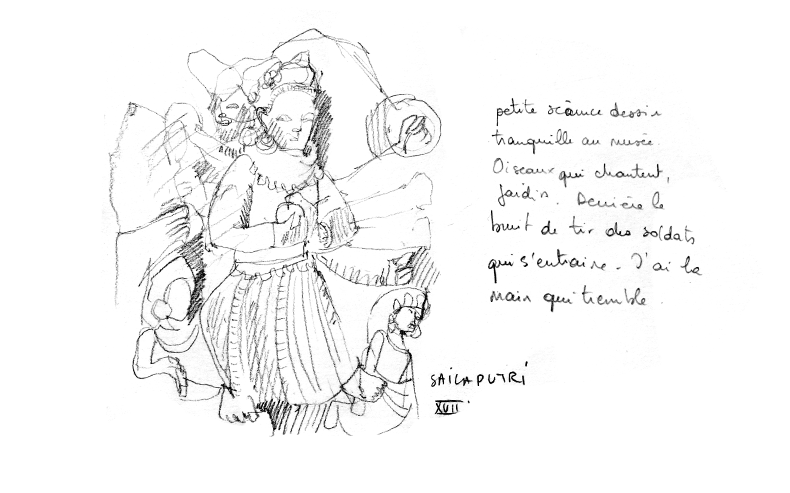 petite séance dessin
tranquille au musée.
Oiseaux qui chantent,
Jardin. Derrière le
bruit de tir des soldats
qui s'entraine. J'ai la
main qui tremble.
SAILAPUTRI
XVII.